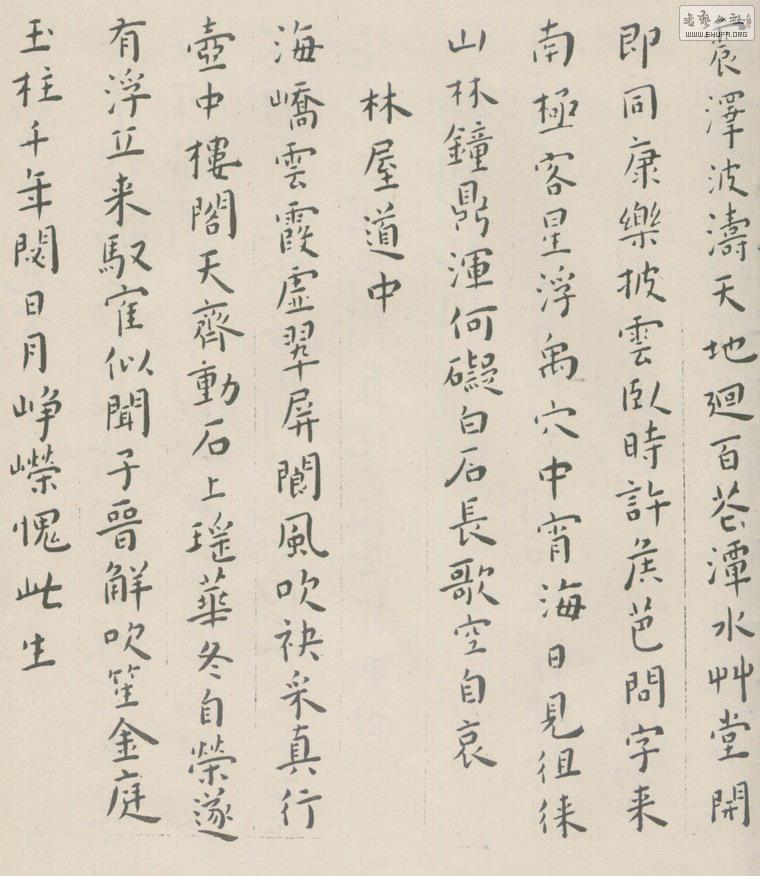 震澤波濤天地廻百花潭水艸堂開
即同康樂披雲臥時許矦芭問字来
南極客星浮禹穴中宵海日見徂徠
山林鐘鼎渾何礙白石長歌空自哀
林屋道中
海嶠雲霞虛翠屏閬風吹袂采真行
壺中樓閣天齊動石上瑤華冬自榮遂
有浮丘来馭寉似聞子晉解吹笙金庭
玉柱千年閟日月崢嶸愧此生
書藝公社
www.SHUFA.ORG